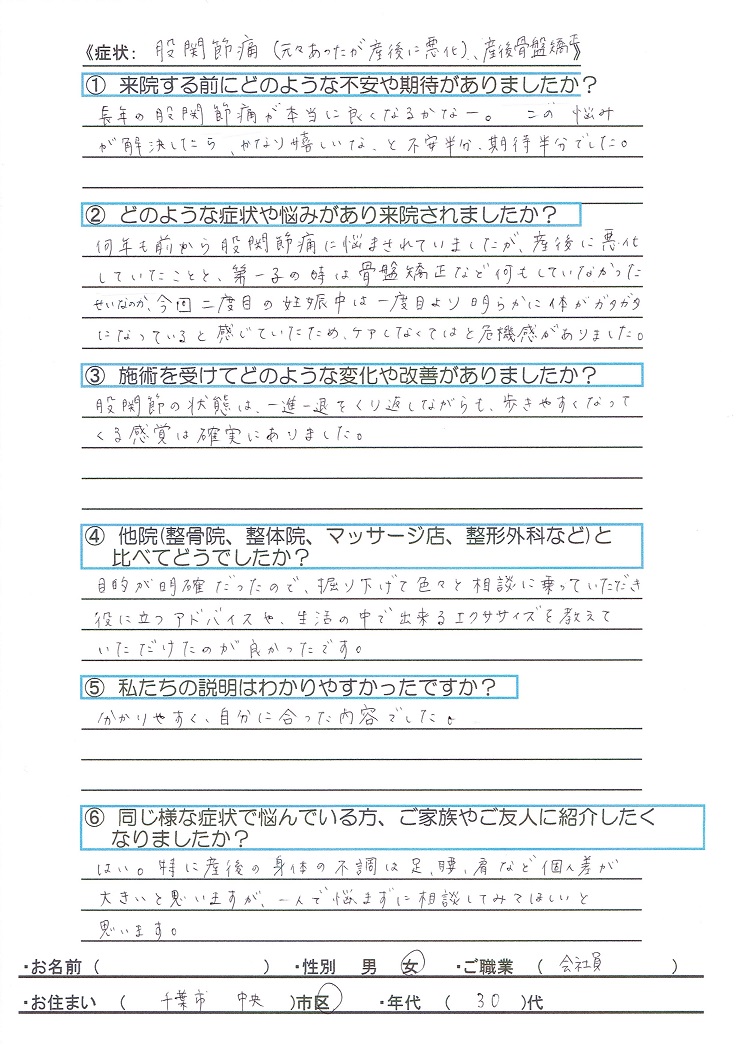 《症状: 股関節痛(元々あったが産後に悪化)、産後骨盤矯正》
① 来院する前にどのような不安や期待がありましたか?
長年の股関節痛が本当に良くなるかなー。 この悩み
が解決したら、かなり嬉しいな、と不安半分、期待半分でした。
② どのような症状や悩みがあり来院されましたか?
何年も前から股関節痛に悩まされていましたが、産後に悪化
していたことと、第一子の時は骨盤矯正など何もしていなかった
せいなのか、今回二度目の妊娠中は一度目より明らかに体がガタガタ
になっていると感じていたため、ケアしなくてはと危機感がありました。
③ 施術を受けてどのような変化や改善がありましたか?
股関節の状態は、一進一退をくり返しながらも、歩きやすくなって
くる感覚は確実にありました。
④ 他院(整骨院、整体院、マッサージ店、整形外科など)と
比べてどうでしたか?
目的が明確だったので、掘り下げて色々と相談に乗っていただき
役に立つアドバイスや、生活の中で出来るエクササイズを教えて
いただけたのが良かったです。
⑤ 私たちの説明はわかりやすかったですか?
分かりやすく、自分に合った内容でした。
⑥ 同じ様な症状で悩んでいる方、ご家族やご友人に紹介したく
なりましたか?
はい。特に産後の身体の不調は足、腰、肩など個人差が
大きいと思いますが、一人で悩まずに相談してみてほしいと
思います。
・お名前 ( ) ・性別 男 女 ・ご職業 ( 会社員 )
・お住まい ( 千葉市 中央 )市区 ・年代 ( 30 )代